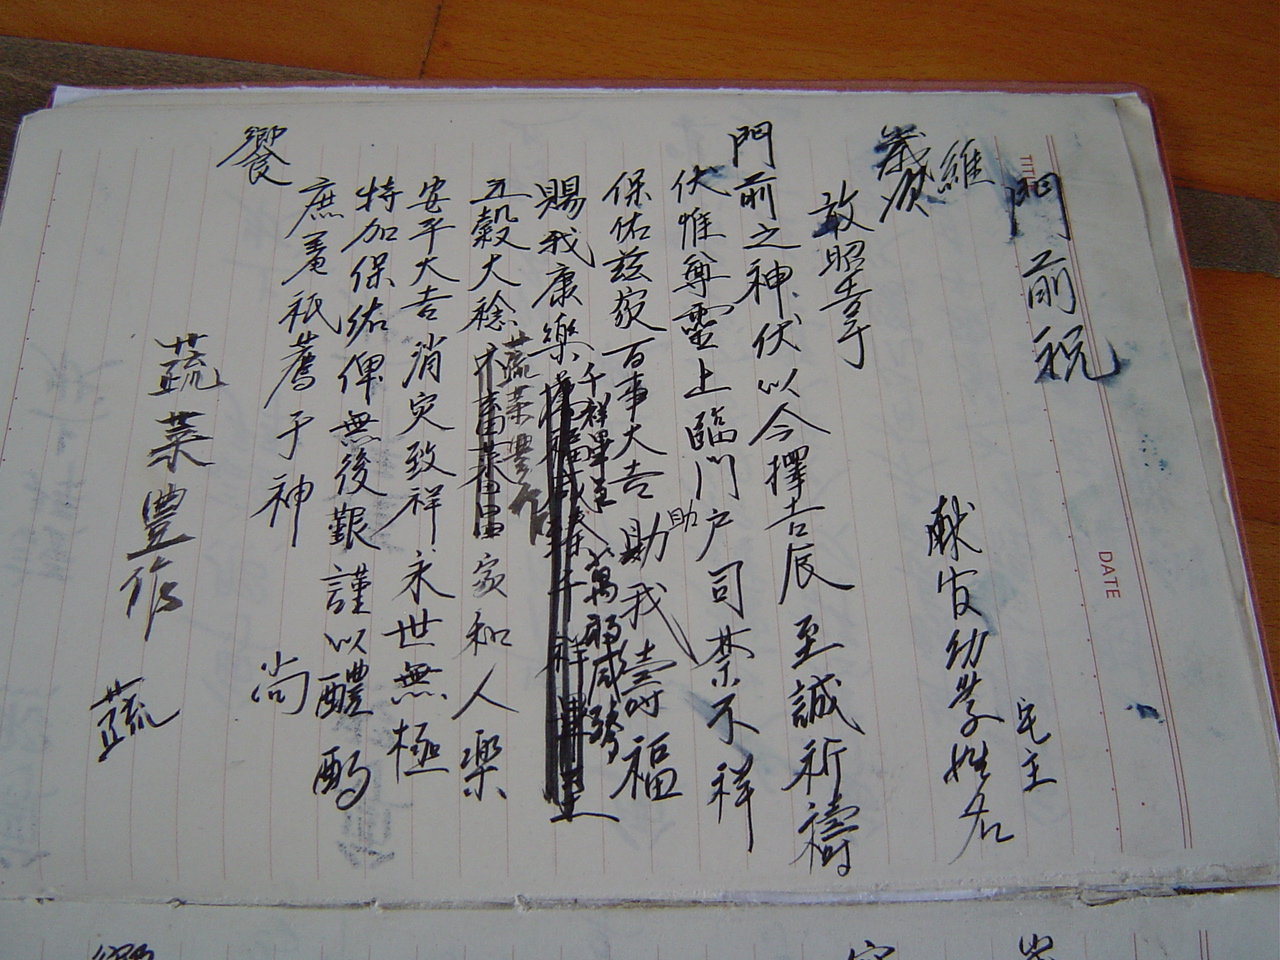 TITLE
DATE
門前祝
宅主
維
歲次
獻官幼學姓名
敢昭告于
門前之神伏以今擇吉辰至誠祈禱
伏惟尊靈上臨門戶司禁不祥
保佑玆家百事大吉助我壽福
助
賜我康樂千祥畢至萬福咸臻
五穀大稔蔬菜豊作家和人樂
安平大吉消灾致祥永世無極
特加保佑俾無後艱謹以醴酌
庶羞祇薦于神尚
饗
蔬菜豊作
蔬